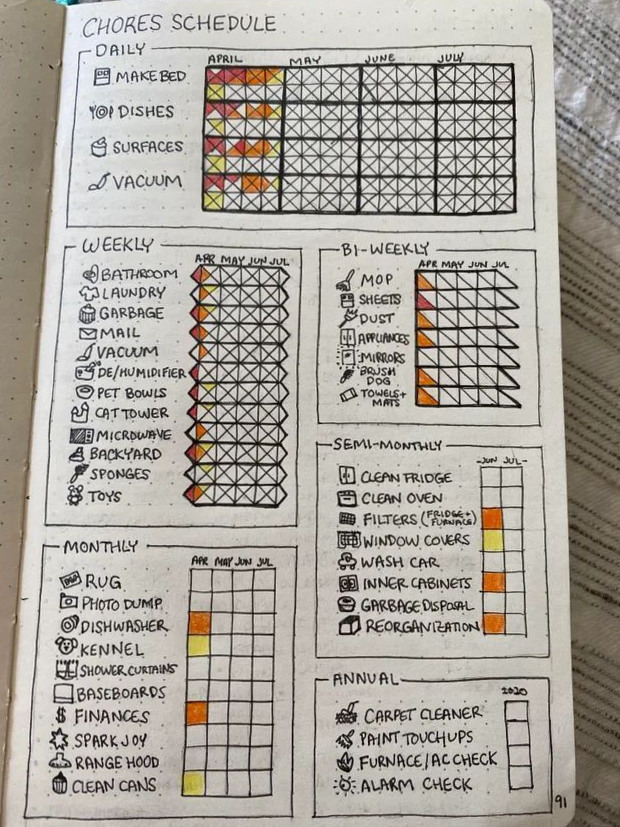 CHORES SCHEDULE
DAILY
APRIL MAY JUNE JULY
MAKE BED
DISHES
SURFACES
VACUUM
WEEKLY
APR MAY JUN JUL
BATHROOM
LAUNDRY
GARBAGE
MAIL
VACUUM
DE/HUMIDIFIER
PET BOWLS
CAT TOWER
MICROWAVE
BACKYARD
SPONGES
TOYS
BI-WEEKLY
APR MAY JUN JUL
MOP
SHEETS
DUST
APPLIANCES
MIRRORS
BRUSH
DOG
TOWELS+
MATS
SEMI-MONTHLY
-JUN JUL-
CLEAN FRIDGE
CLEAN OVEN
FILTERS (FRIDGE+
FURNACE)
WINDOW COVERS
WASH CAR
INNER CABINETS
GARBAGE DISPOSAL
REORGANIZATION
MONTHLY
APR MAY JUN JUL
RUG
PHOTO DUMP
DISHWASHER
KENNEL
SHOWER CURTAINS
BASEBOARDS
$ FINANCES
SPARK JOY
RANGE HOOD
CLEAN CANS
ANNUAL
2020
CARPET CLEANER
PAINT TOUCHUPS
FURNACE/AC CHECK
ALARM CHECK
91